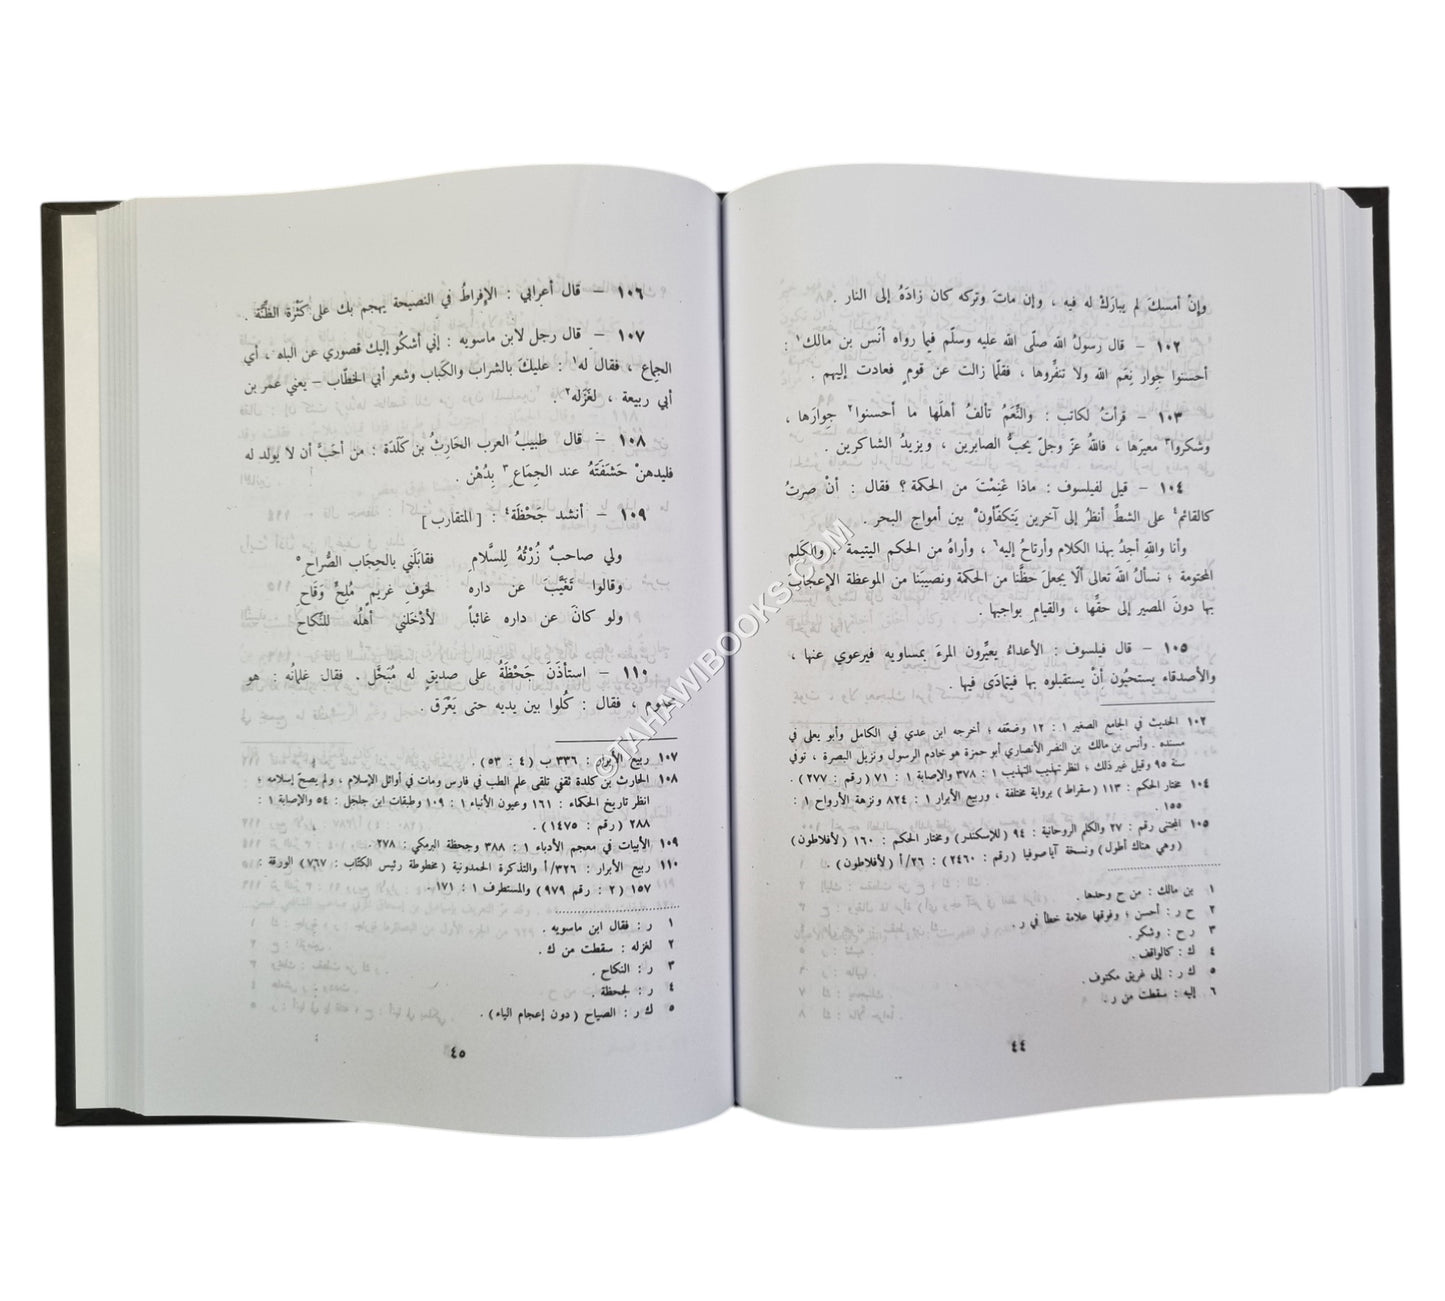 وإنْ أمسكَ لم يبارَكْ له فيه ، وإن ماتَ وتركه كان زادَهُ إلى النار .
١٠٢ – قال رسولُ الله صلّى الله عليه وسلّم فيما رواه أنَس بن مالك١ :
أحسنوا جِوار نِعَم الله ولا تنفِّروها ، فقلَّما زالت عن قومٍ فعادت إليهم .
١٠٣ – قرأتُ لكاتب : والنِّعَمُ تألفُ أهلَها ما أحسنوا٢ جِوارَها ،
وشكروا٣ معيرَها ، فاللهُ عزّ وجلّ يحبُّ الصابرين ، ويزيدُ الشاكرين .
١٠٤ – قيل لفيلسوف : ماذا غَنِمْتَ من الحكمة ؟ فقال : أنْ صرتُ
كالقائم٤ على الشطِّ أنظرُ إلى آخرين يَتكفّأون٥ بين أمواج البحر .
وأنا والله أجِدُ بهذا الكلام وأرتاح إليه٦ ، وأراهُ من الحكم اليتيمة ، والكَلِم
المختومة ؛ نسألُ اللهَ تعالى ألّا يجعلَ حظَّنا من الحكمة ونصيبَنا من الموعظة الإعجابَ
بها دونَ المصير إلى حقّها ، والقيامِ بواجبها .
١٠٥ – قال فيلسوف : الأعداءُ يعيِّرون المرءَ بمساويه فيرعوي عنها ،
والأصدقاء يستحيُون أنْ يستقبلوه بها فيتمادَى فيها
١٠٢ الحديث في الجامع الصغير ١ : ١٢ وضعّفه ؛ أخرجه ابن عدي في الكامل وأبو يعلى في
مسنده . وأنس بن مالك بن النضر الأنصاري أبو حمزة هو خادم الرسول ونزيل البصرة ، توفي
سنة ٩٥ وقيل غير ذلك ؛ انظر تهذيب التهذيب ١ : ٣٧٨ والإصابة ١ : ٧١ (رقم : ٢٧٧) .
١٠٤ مختار الحكم : ١١٣ (سقراط) برواية مختلفة ، وربيع الأبرار ١ : ٨٢٤ ونزهة الأرواح ١ :
١٥٥ .
١٠٥ المجتنى رقم : ٢٧ والكلم الروحانية : ٩٤ (للإسكندر) ومختار الحكم : ١٦٠ (لأفلاطون)
(وهي هناك أطول) ونسخة آياصوفيا (رقم : ٢٤٦٠) : ٢٦/أ (لأفلاطون) .
١ بن مالك : من ح وحدها .
٢ ح ر : أحسن ؛ وفوقها علامة خطأ في ر .
٣ ر ح : وشكر .
٤ ك : كالواقف .
٥ ك ر : إلى غريق مكتوف .
٦ إليه : سقطت من ر
٤٤
١٠٦ – قال أعرابي : الإفراطُ في النصيحة يهجم بك على كَثْرة الظنَّة .
١٠٧ – قال رجل لابن ماسويه : إني أشكُو إليك قصوري عن الباه ، أي
الجِماع ، فقال له١ : عليكَ بالشراب والكَباب وشعر أبي الخطّاب – يعني عمر بن
أبي ربيعة ، لغَزَله٢ .
١٠٨ – قال طبيبُ العرب الحَارِثُ بن كَلَدَة : من أحَبَّ أن لا يولد له
فليدهنْ حَشَفَتَهُ عند الجِمَاع٣ بِدُهْن .
١٠٩ – أنشد جَحْظَة٤ : [ المتقارب ]
ولي صاحبٌ زُرْتُهُ لِلسَّلامِ فقابَلَني بالحجَاب الصُّراحِ٥
وقالوا تَغَيَّبَ عن داره لخوفِ غريمٍ مُلِحٍّ وَقَاحِ
ولو كانَ عن داره غائباً لأدْخَلَني أهلُه للنّكاحِ
١١٠ – استأذَنَ جَحْظَةُ على صديقٍ له مُبَخَّل . فقال غلمانُه : هو
محموم ، فقال : كُلوا بين يديه حتى يَعْرَق .
١٠٧ ربيع الأبرار : ٣٣٦ ب (٤ : ٥٣) .
١٠٨ الحارث بن كلدة ثقفي تلقى علم الطب في فارس ومات في أوائل الإسلام ، ولم يصحّ إسلامه ؛
انظر تاريخ الحكماء : ١٦١ وعيون الأنباء ١ : ١٠٩ وطبقات ابن جلجل : ٥٤ والإصابة ١ :
٢٨٨ (رقم : ١٤٧٥) .
١٠٩ الأبيات في معجم الأدباء ١ : ٣٨٨ وجحظة البرمكي : ٢٧٨ .
١١٠ ربيع الأبرار : ٣٢٦/أ والتذكرة الحمدونية (مخطوطة رئيس الكتّاب : ٧٦٧) الورقة :
١٥٧ (٢ : رقم ٩٧٩) والمستطرف ١ : ١٧١ .
١ ر : فقال ابن ماسويه .
٢ لغزله : سقطت من ك .
٣ ر : النكاح .
٤ ر : لجحظة .
٥ ك ر : الصياح (دون إعجام الياء) .
٤٥
©TAHAWIBOOKS.COM